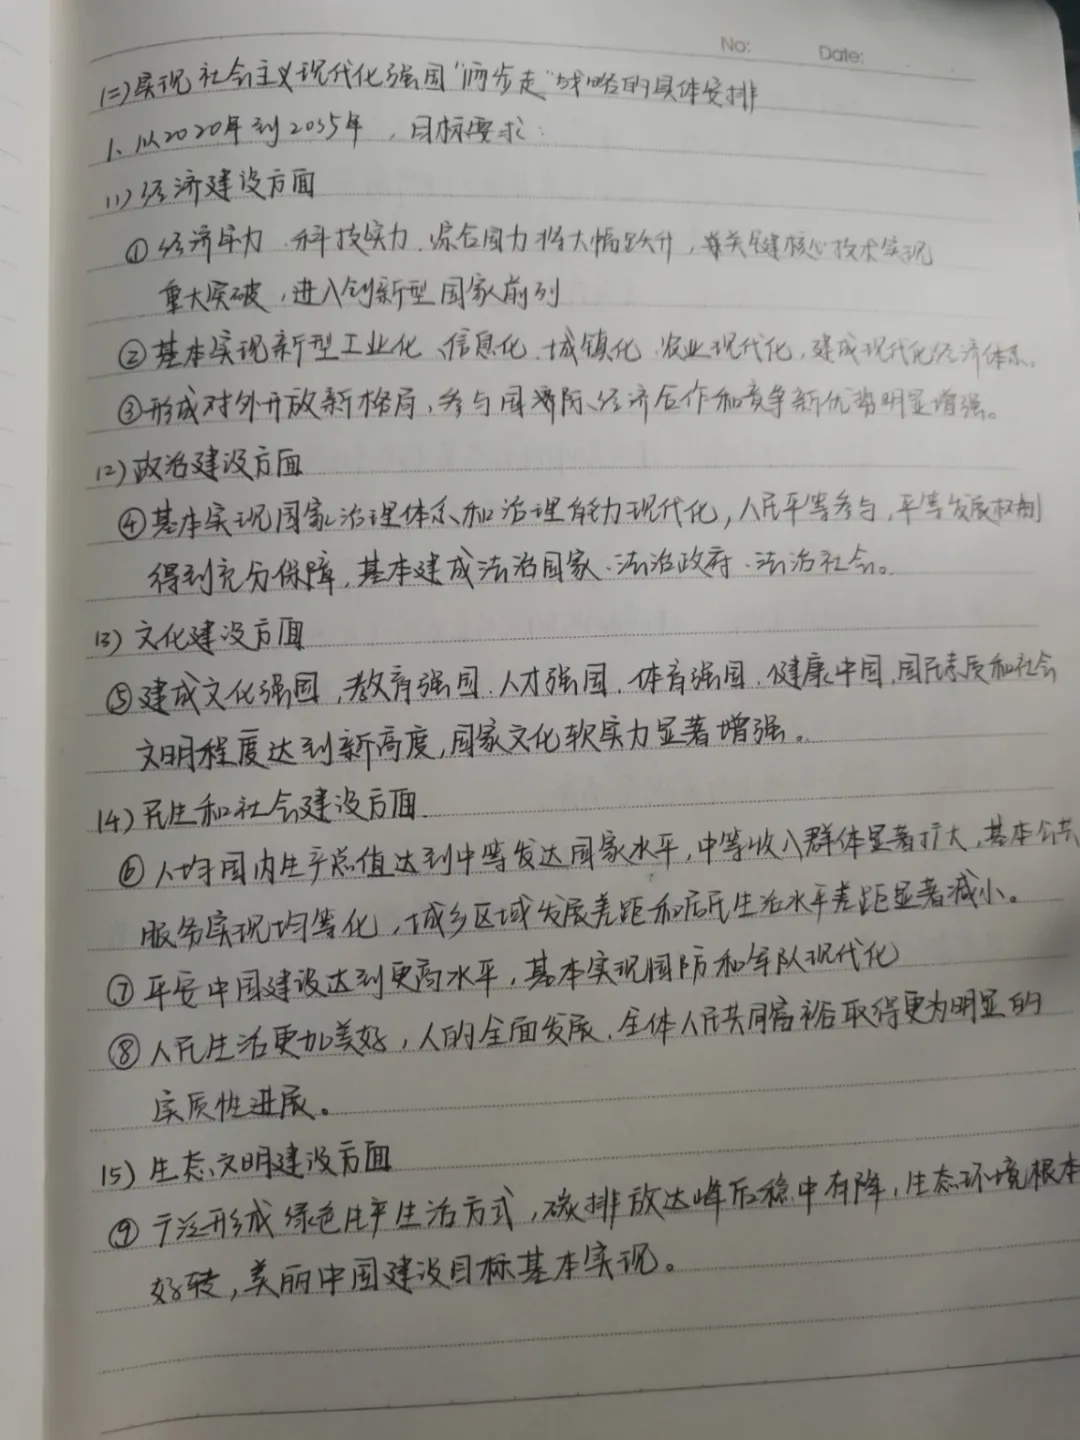 No: Date:
(二)实现社会主义现代化强国“两步走”战略的具体安排
1、从2020年到2035年,目标要求:
(1)经济建设方面
①经济实力、科技实力、综合国力将大幅跃升,关键核心技术实现
重大突破,进入创新型国家前列
②基本实现新型工业化、信息化、城镇化、农业现代化,建成现代化经济体系。
③形成对外开放新格局,参与国际、经济合作和竞争新优势明显增强。
(2)政治建设方面
④基本实现国家治理体系和治理能力现代化,人民平等参与,平等发展权利
得到充分保障,基本建成法治国家、法治政府、法治社会。
(3)文化建设方面
⑤建成文化强国、教育强国、人才强国、体育强国、健康中国,国民素质和社会
文明程度达到新高度,国家文化软实力显著增强。
(4)民生和社会建设方面
⑥人均国内生产总值达到中等发达国家水平,中等收入群体显著扩大,基本公共
服务实现均等化,城乡区域发展差距和居民生活水平差距显著减小。
⑦平安中国建设达到更高水平,基本实现国防和军队现代化
⑧人民生活更加美好,人的全面发展、全体人民共同富裕取得更为明显的
实质性进展。
(5)生态文明建设方面
⑨广泛形成绿色生产生活方式,碳排放达峰后稳中有降,生态环境根本
好转,美丽中国建设目标基本实现。